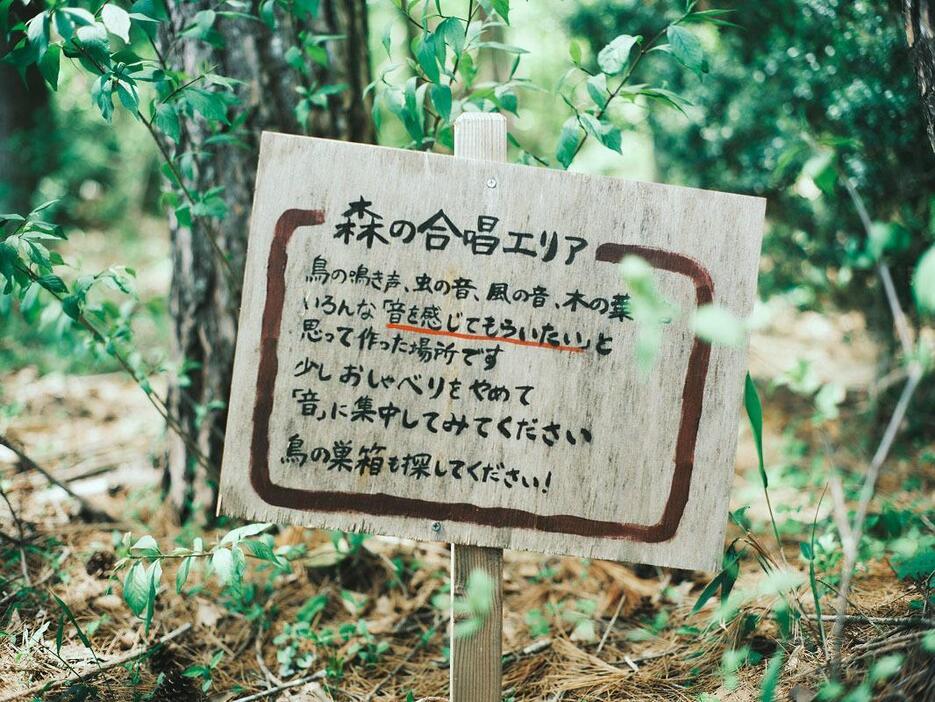 森の合唱エリア
鳥の鳴き声、虫の音、風の音、木の葉
いろんな「音を感じてもらいたい」と
思って作った場所です
少しおしゃべりをやめて
「音」に集中してみてください
鳥の巣箱も探してください!